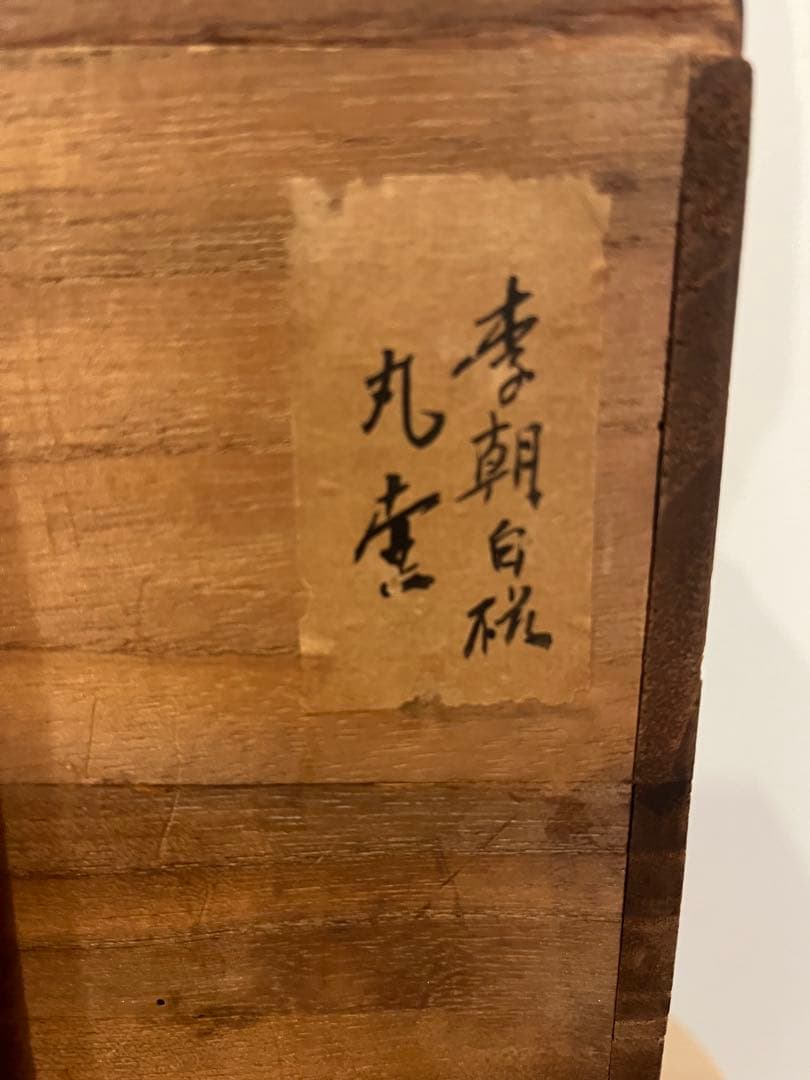 李朝白磁
丸壷